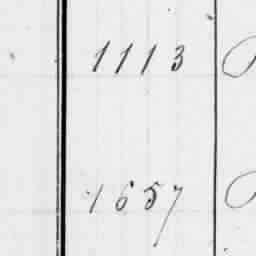 1113
1657